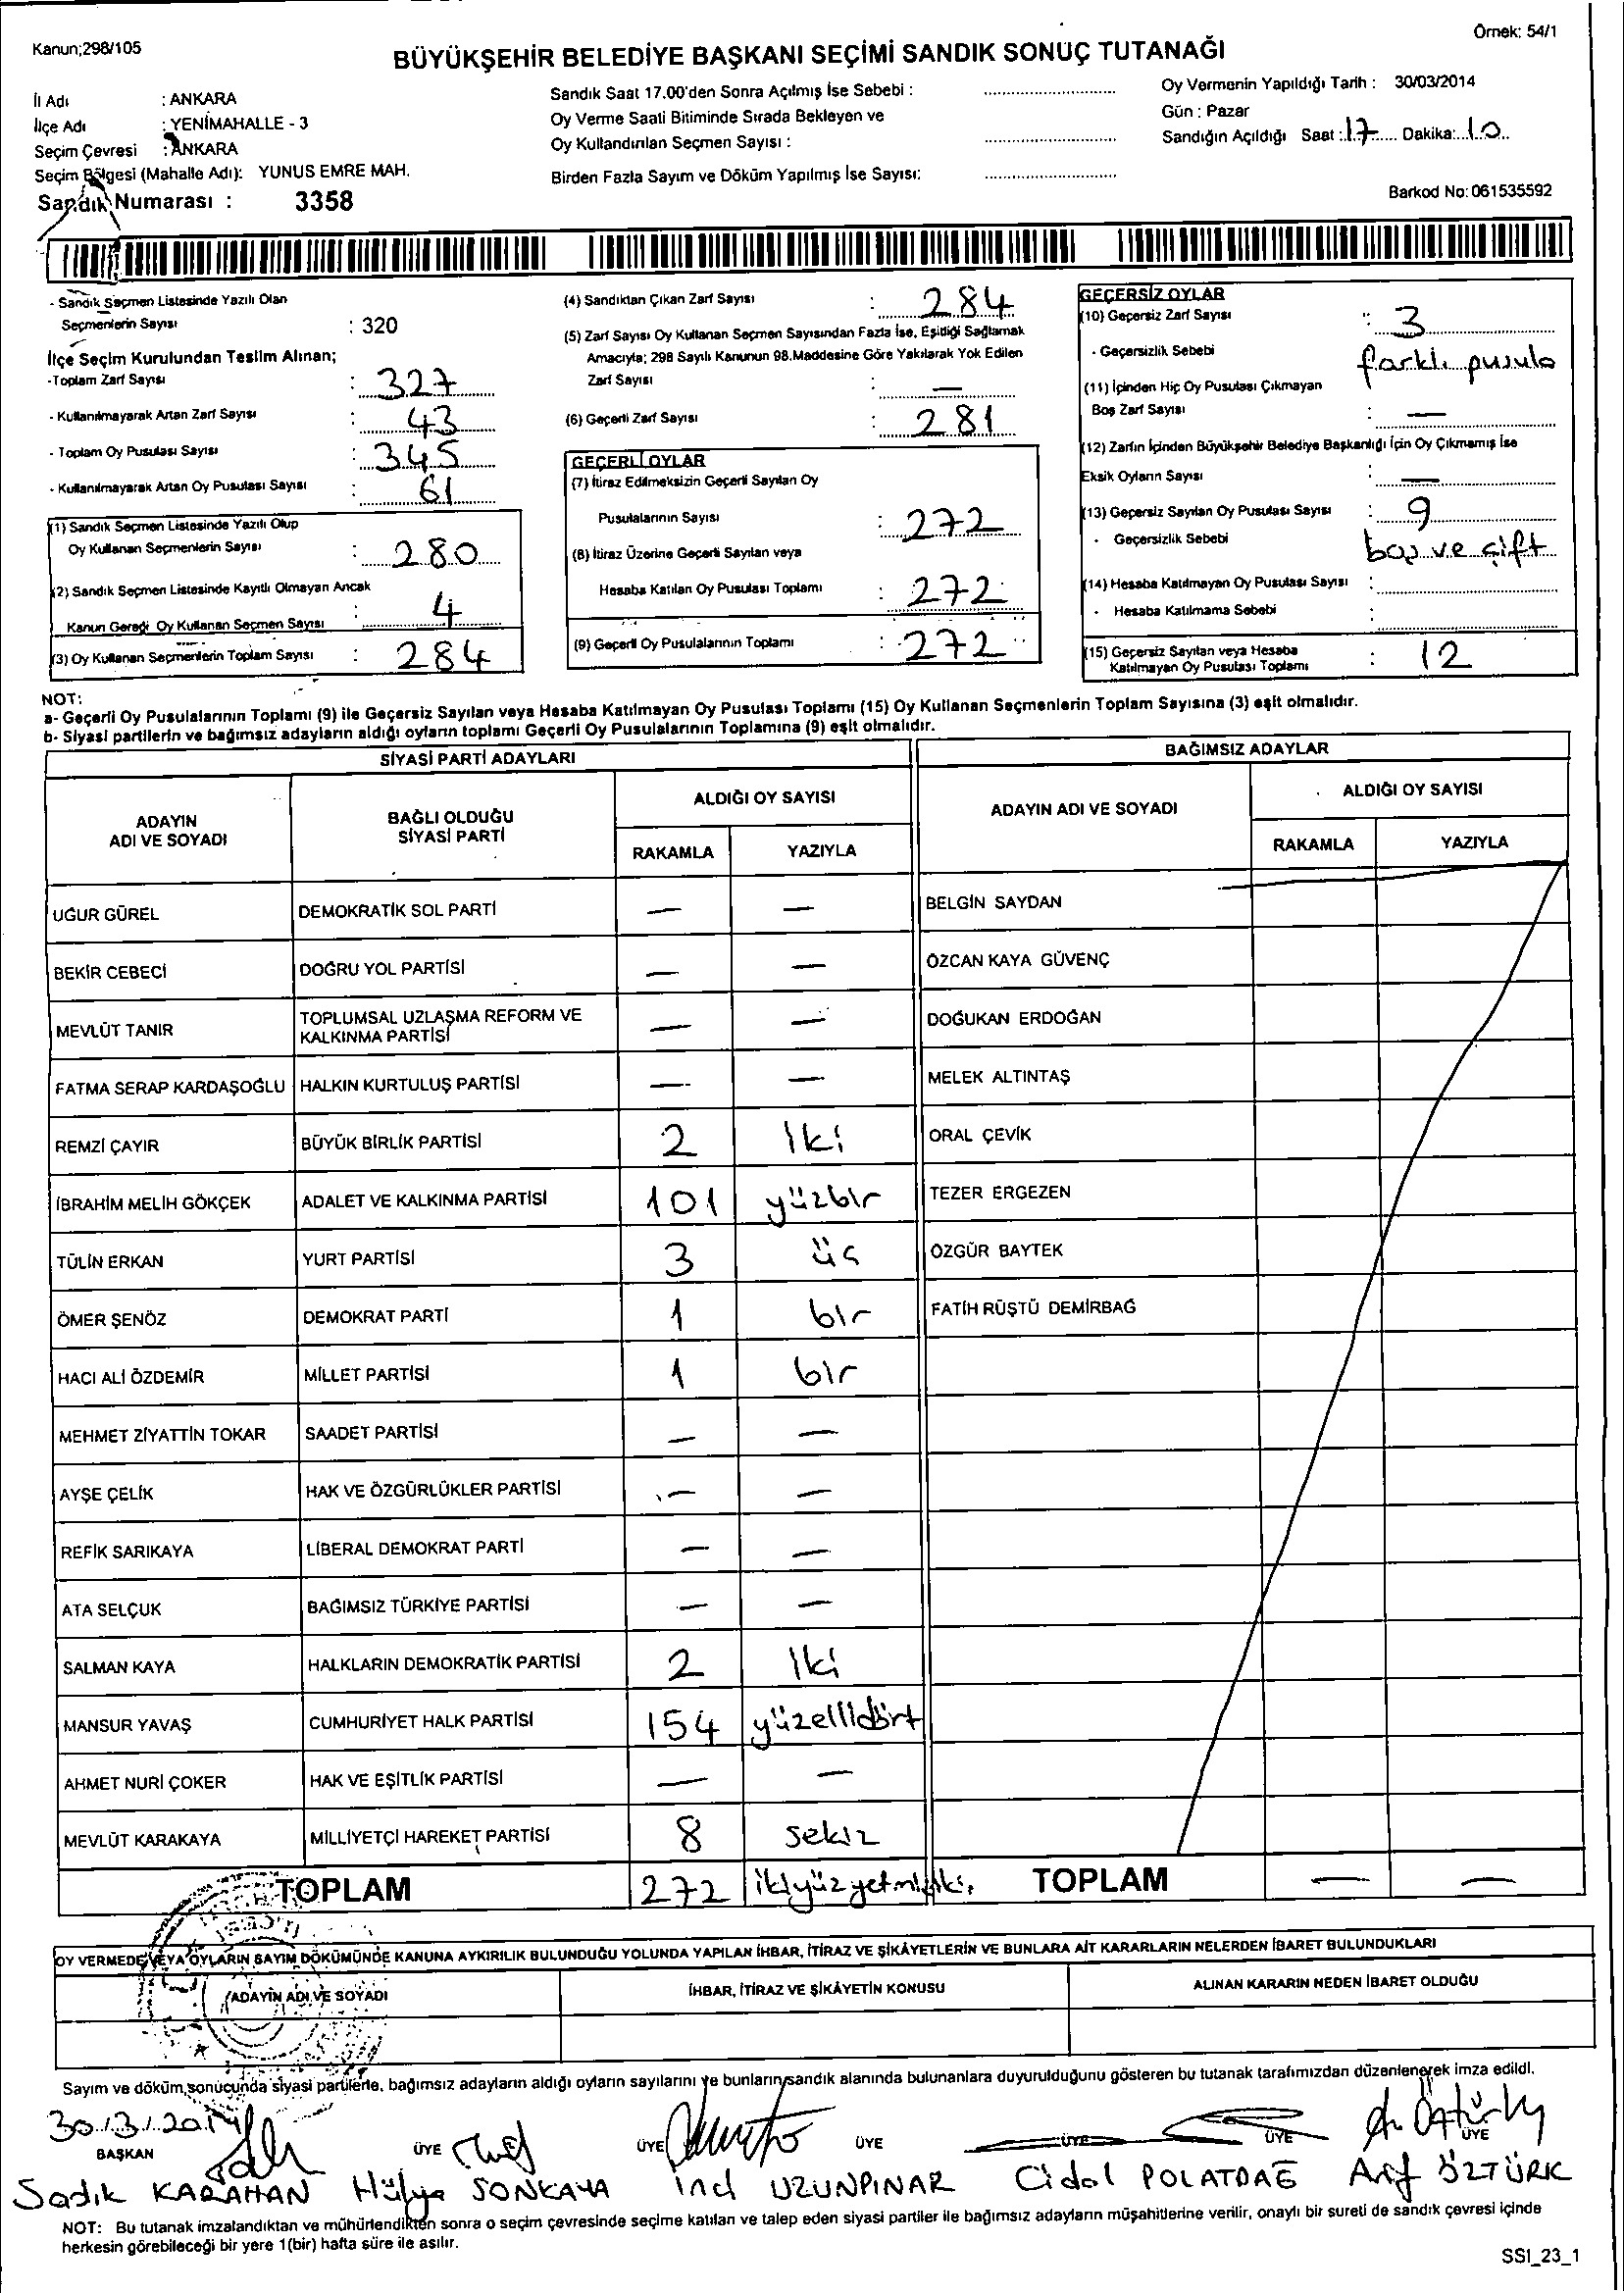 Kanun;298/105
Örnek: 54/1
BÜYÜKŞEHİR BELEDİYE BAŞKANI SEÇİMİ SANDIK SONUÇ TUTANAĞI
İl Adı : ANKARA
İlçe Adı : YENİMAHALLE - 3
Seçim Çevresi : ANKARA
Seçim Bölgesi (Mahalle Adı): YUNUS EMRE MAH.
Sandık Numarası : 3358
Sandık Saat 17.00'den Sonra Açılmış İse Sebebi :
Oy Verme Saati Bitiminde Sırada Bekleyen ve
Oy Kullandırılan Seçmen Sayısı :
Birden Fazla Sayım ve Döküm Yapılmış İse Sayısı:
Oy Vermenin Yapıldığı Tarih : 30/03/2014
Gün : Pazar
Sandığın Açıldığı Saat : 17 Dakika: 10
Barkod No: 061535592
- Sandık Seçmen Listesinde Yazılı Olan
Seçmenlerin Sayısı : 320
İlçe Seçim Kurulundan Teslim Alınan;
-Toplam Zarf Sayısı : 327
- Kullanılmayarak Artan Zarf Sayısı : 43
- Toplam Oy Pusulası Sayısı : 345
- Kullanılmayarak Artan Oy Pusulası Sayısı : 61
(1) Sandık Seçmen Listesinde Yazılı Olup
Oy Kullanan Seçmenlerin Sayısı : 280
(2) Sandık Seçmen Listesinde Kayıtlı Olmayan Ancak
Kanun Gereği Oy Kullanan Seçmen Sayısı : 4
(3) Oy Kullanan Seçmenlerin Toplam Sayısı : 284
(4) Sandıktan Çıkan Zarf Sayısı : 284
(5) Zarf Sayısı Oy Kullanan Seçmen Sayısından Fazla İse, Eşitliği Sağlamak
Amacıyla; 298 Sayılı Kanunun 98.Maddesine Göre Yakılarak Yok Edilen
Zarf Sayısı : —
(6) Geçerli Zarf Sayısı : 281
GEÇERLİ OYLAR
(7) İtiraz Edilmeksizin Geçerli Sayılan Oy
Pusulalarının Sayısı : 272
(8) İtiraz Üzerine Geçerli Sayılan veya
Hesaba Katılan Oy Pusulası Toplamı : 272
(9) Geçerli Oy Pusulalarının Toplamı : 272
GEÇERSİZ OYLAR
(10) Geçersiz Zarf Sayısı : 3
- Geçersizlik Sebebi farklı pusula
(11) İçinden Hiç Oy Pusulası Çıkmayan
Boş Zarf Sayısı : —
(12) Zarfın İçinden Büyükşehir Belediye Başkanlığı İçin Oy Çıkmamış İse
Eksik Oyların Sayısı : —
(13) Geçersiz Sayılan Oy Pusulası Sayısı : 9
- Geçersizlik Sebebi boş ve çift
(14) Hesaba Katılmayan Oy Pusulası Sayısı :
- Hesaba Katılmama Sebebi :
(15) Geçersiz Sayılan veya Hesaba
Katılmayan Oy Pusulası Toplamı : 12
NOT:
a- Geçerli Oy Pusulalarının Toplamı (9) ile Geçersiz Sayılan veya Hesaba Katılmayan Oy Pusulası Toplamı (15) Oy Kullanan Seçmenlerin Toplam Sayısına (3) eşit olmalıdır.
b- Siyasi partilerin ve bağımsız adayların aldığı oyların toplamı Geçerli Oy Pusulalarının Toplamına (9) eşit olmalıdır.
SİYASİ PARTİ ADAYLARI
BAĞIMSIZ ADAYLAR
ADAYIN ADI VE SOYADI
BAĞLI OLDUĞU SİYASİ PARTİ
ALDIĞI OY SAYISI
RAKAMLA YAZIYLA
ADAYIN ADI VE SOYADI
ALDIĞI OY SAYISI
RAKAMLA YAZIYLA
UĞUR GÜREL DEMOKRATİK SOL PARTİ — — BELGİN SAYDAN
BEKİR CEBECİ DOĞRU YOL PARTİSİ — — ÖZCAN KAYA GÜVENÇ
MEVLÜT TANIR TOPLUMSAL UZLAŞMA REFORM VE KALKINMA PARTİSİ — — DOĞUKAN ERDOĞAN
FATMA SERAP KARDAŞOĞLU HALKIN KURTULUŞ PARTİSİ — — MELEK ALTINTAŞ
REMZİ ÇAYIR BÜYÜK BİRLİK PARTİSİ 2 iki ORAL ÇEVİK
İBRAHİM MELİH GÖKÇEK ADALET VE KALKINMA PARTİSİ 101 yüzbir TEZER ERGEZEN
TÜLİN ERKAN YURT PARTİSİ 3 üç ÖZGÜR BAYTEK
ÖMER ŞENÖZ DEMOKRAT PARTİ 1 bir FATİH RÜŞTÜ DEMİRBAĞ
HACI ALİ ÖZDEMİR MİLLET PARTİSİ 1 bir
MEHMET ZİYATTİN TOKAR SAADET PARTİSİ — —
AYŞE ÇELİK HAK VE ÖZGÜRLÜKLER PARTİSİ — —
REFİK SARIKAYA LİBERAL DEMOKRAT PARTİ — —
ATA SELÇUK BAĞIMSIZ TÜRKİYE PARTİSİ — —
SALMAN KAYA HALKLARIN DEMOKRATİK PARTİSİ 2 iki
MANSUR YAVAŞ CUMHURİYET HALK PARTİSİ 154 yüzellidört
AHMET NURİ ÇOKER HAK VE EŞİTLİK PARTİSİ — —
MEVLÜT KARAKAYA MİLLİYETÇİ HAREKET PARTİSİ 8 sekiz
TOPLAM 272 ikiyüzyetmişiki TOPLAM — —
OY VERMEDE VEYA OYLARIN SAYIM DÖKÜMÜNDE KANUNA AYKIRILIK BULUNDUĞU YOLUNDA YAPILAN İHBAR, İTİRAZ VE ŞİKÂYETLERİN VE BUNLARA AİT KARARLARIN NELERDEN İBARET BULUNDUKLARI
ADAYIN ADI VE SOYADI İHBAR, İTİRAZ VE ŞİKÂYETİN KONUSU ALINAN KARARIN NEDEN İBARET OLDUĞU
Sayım ve döküm sonucunda siyasi partilerle, bağımsız adayların aldığı oyların sayılarını ve bunların sandık alanında bulunanlara duyurulduğunu gösteren bu tutanak tarafımızdan düzenlenerek imza edildi.
30/3/2014
BAŞKAN ÜYE ÜYE ÜYE ÜYE ÜYE ÜYE
Sadık KARAHAN Hülya SONKAYA inci UZUNPINAR Cidal POLATDAĞ Arif ÖZTÜRK
NOT: Bu tutanak imzalandıktan ve mühürlendikten sonra o seçim çevresinde seçime katılan ve talep eden siyasi partiler ile bağımsız adayların müşahitlerine verilir, onaylı bir sureti de sandık çevresi içinde
herkesin görebileceği bir yere 1(bir) hafta süre ile asılır.
SSI_23_1